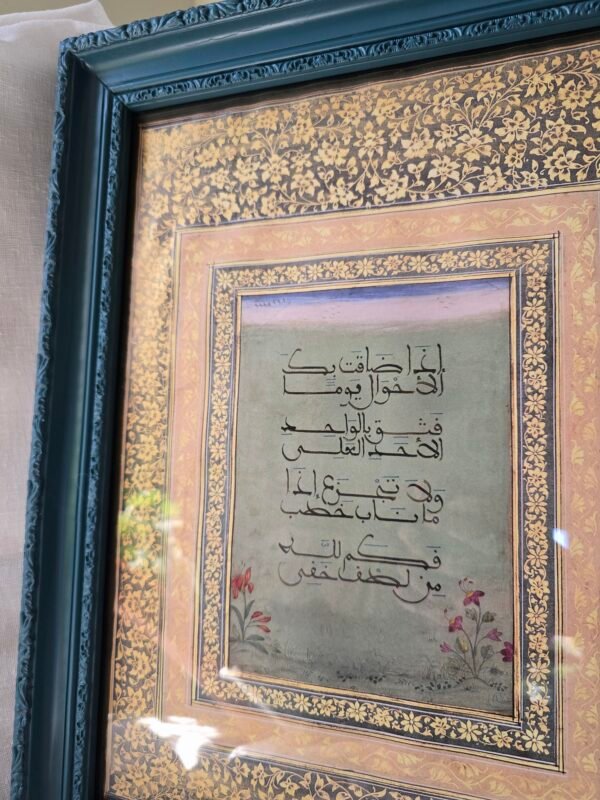 إذا ضاقت بك
الأحوال يوما
فثق بالواحد
الأحد العلى
ولا تجزع إذا
ما ناب خطب
فكم لله
من لطف خفى